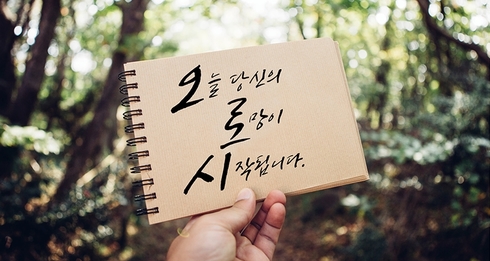 오늘 당신의
로망이
시작됩니다.